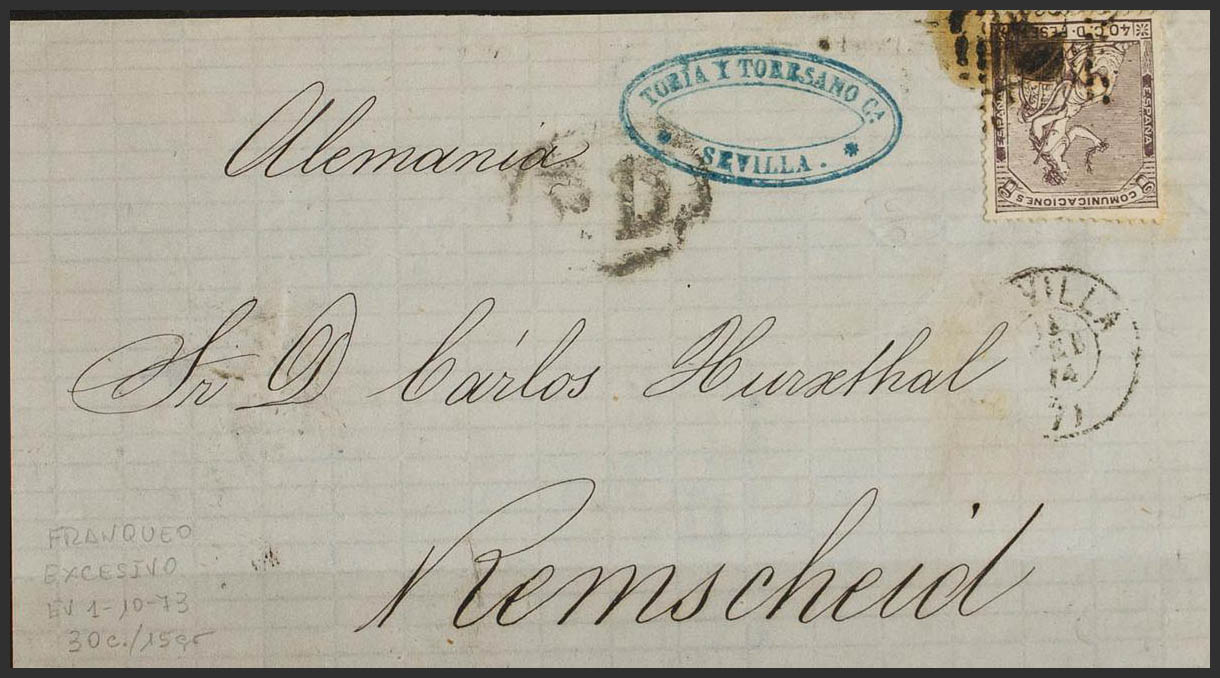 TORÍA Y TORRSANO C.ª
SEVILLA.
40 C. D. PESETA
ESPAÑA
COMUNICACIONES
Alemania
P.D.
VILLA
14
Sr D Cárlos Hurxthal
Remscheid
FRANQUEO
EXCESIVO
EV 1-10-73
30c./15gr